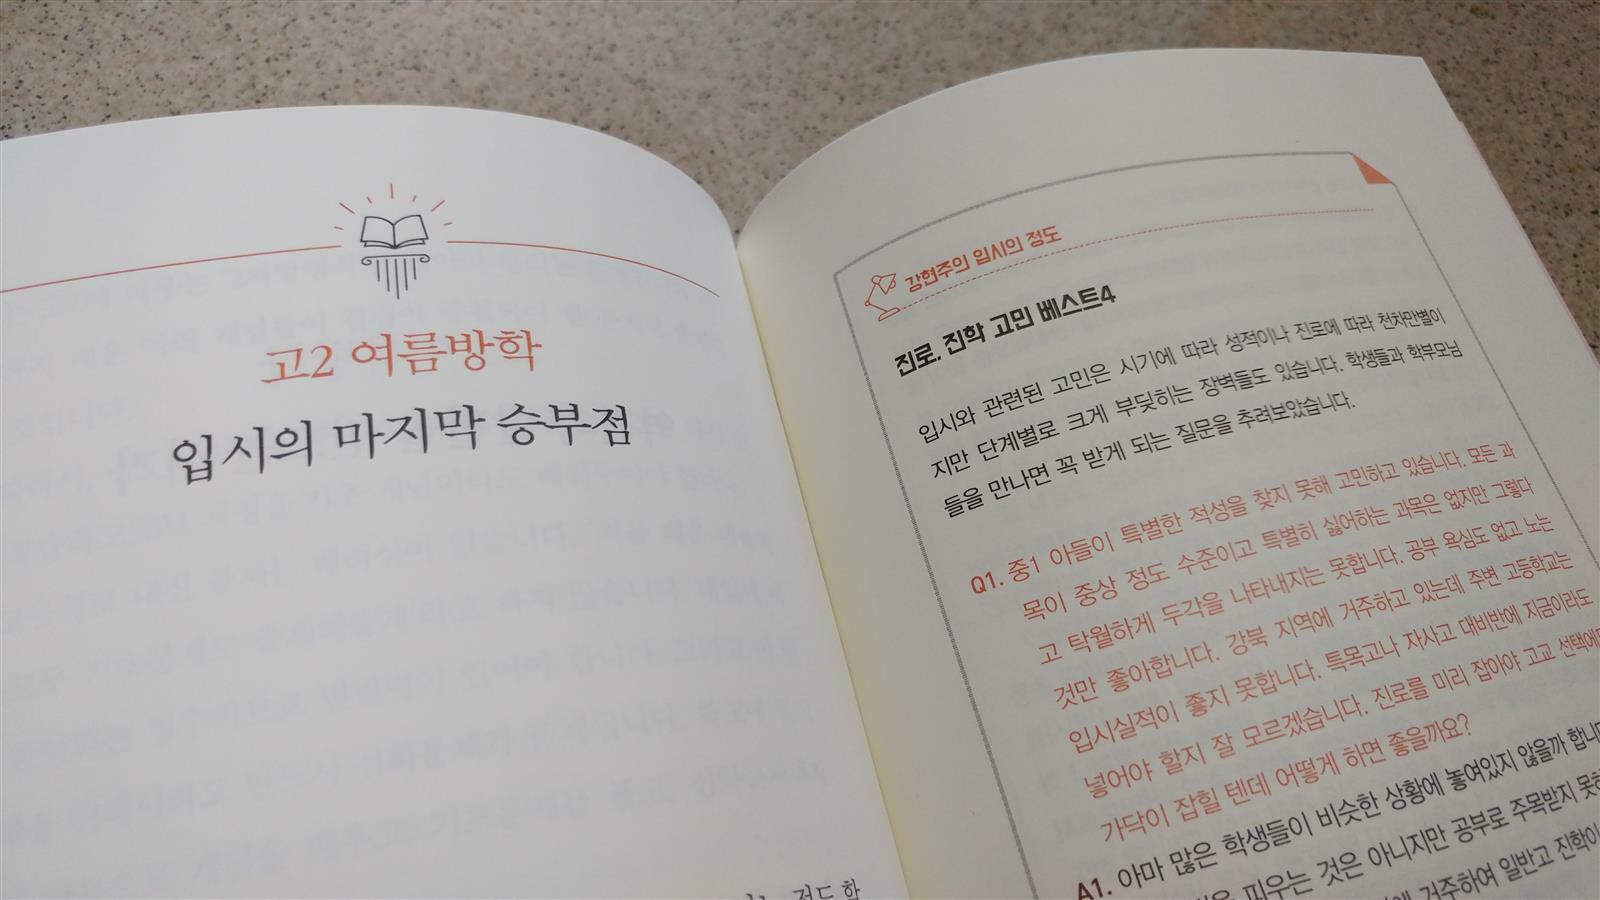 고2 여름방학
입시의 마지막 승부점
강현주의 입시의 정도
진로, 진학 고민 베스트4
입시와 관련된 고민은 시기에 따라 성적이나 진로에 따라 천차만별이
지만 단계별로 크게 부딪히는 장벽들도 있습니다. 학생들과 학부모님
들을 만나면 꼭 받게 되는 질문을 추려보았습니다.
Q1. 중1 아들이 특별한 적성을 찾지 못해 고민하고 있습니다. 모든 과
목이 중상 정도 수준이고 특별히 싫어하는 과목은 없지만 그렇다
고 탁월하게 두각을 나타내지는 못합니다. 공부 욕심도 없고 노는
것만 좋아합니다. 강북 지역에 거주하고 있는데 주변 고등학교는
입시실적이 좋지 못합니다. 특목고나 자사고 대비반에 지금이라도
넣어야 할지 잘 모르겠습니다. 진로를 미리 잡아야 고교 선택에
가닥이 잡힐 텐데 어떻게 하면 좋을까요?
A1. 아마 많은 학생들이 비슷한 상황에 놓여있지 않을까 합니다
피우는 것은 아니지만 공부로 주목받지 못하
거주하여 일반고 진학이